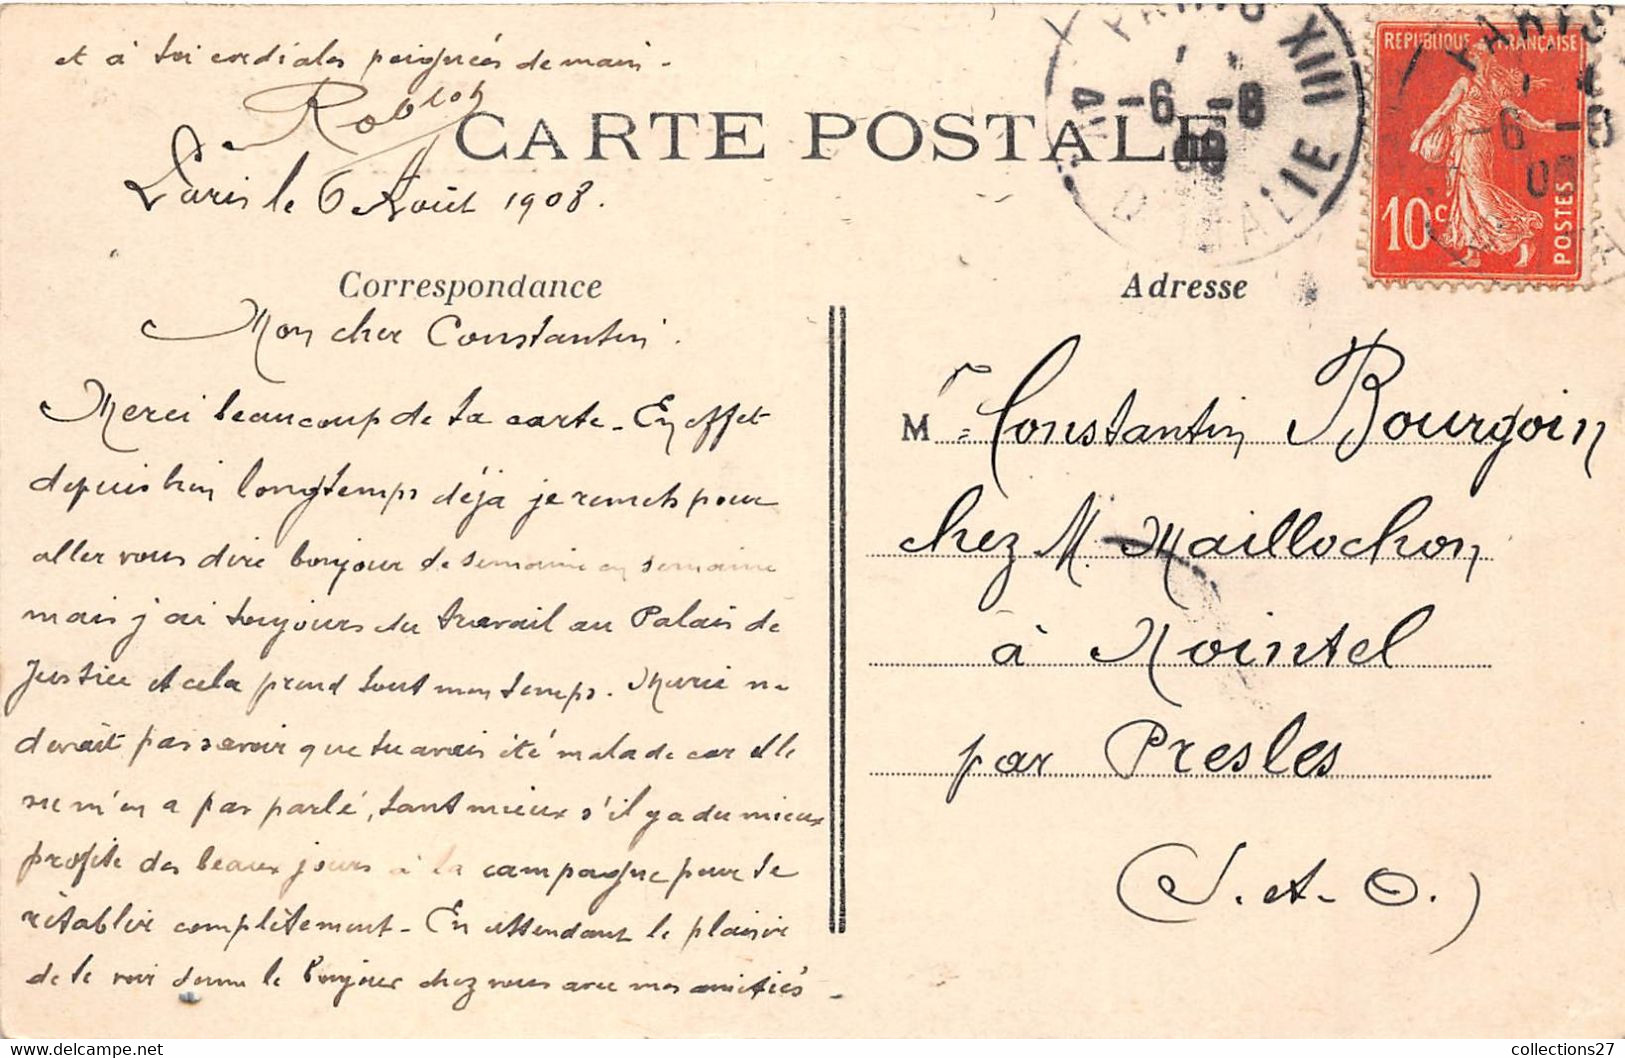 et à toi cordiales poignées de main -
Robloh
CARTE POSTALE
Paris le 6 Août 1908.
Correspondance
Mon cher Constantin.
Merci beaucoup de ta carte - En effet
depuis bien longtemps déjà je remets pour
aller vous dire bonjour de semaine en semaine
mais j'ai toujours du travail au Palais de
Justice et cela prend tout mon temps. Marie ne
devait pas savoir que tu avais été malade car elle
ne m'en a pas parlé, tant mieux s'il y a du mieux
profite des beaux jours à la campagne pour te
rétablir complètement - En attendant le plaisir
de te voir donne le bonjour chez vous avec mes amitiés -
PARIS XIII
-6 -8
08
D'ITALIE
REPUBLIQUE FRANÇAISE
10c
POSTES
PARIS
-6 -8
Adresse
Mr Constantin Bourgoin
chez M. Maillochon
à Nointel
par Presles
(S. et - O.)
collections27